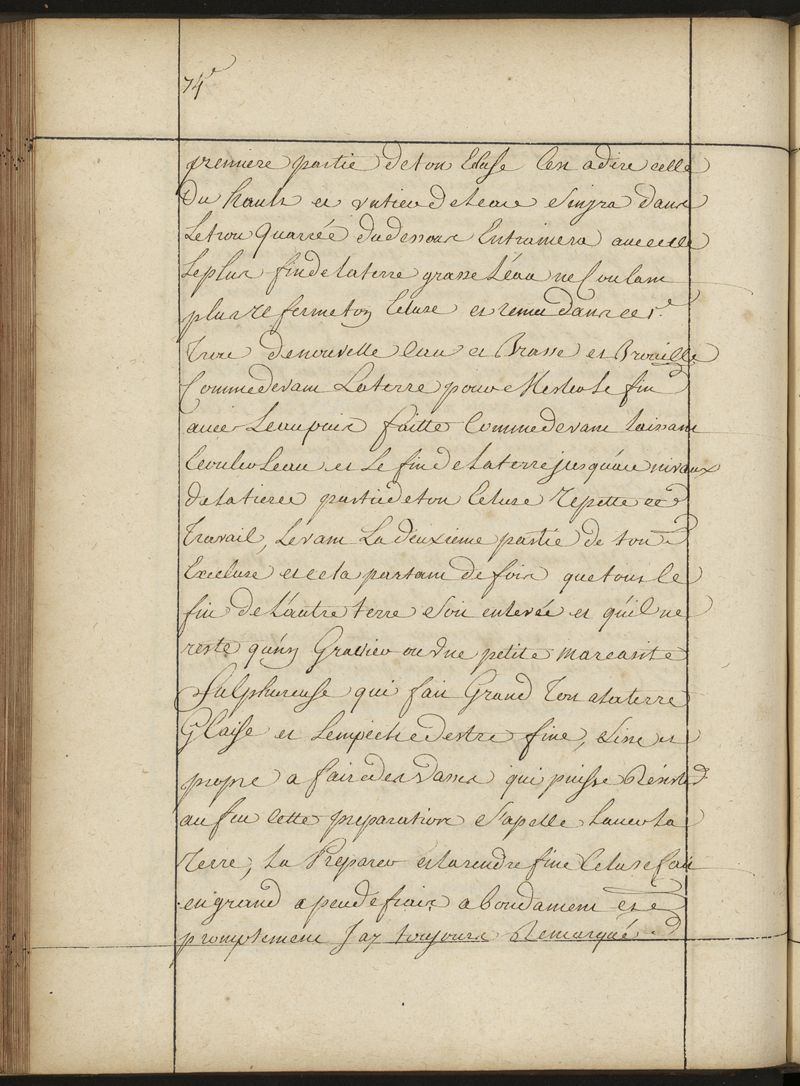 74e
premiere partie de ton Ecluse C'en a dire celle
Du hault et entiere de terre S'ingra dans
Le trou Quarrée du dessous Entrainera avec elle
Le plus fin de la terre grasse L'éau ne Coulant
plus Referme ton Ecluse et remu dans ce 1.er
Trou de nouvelle eau et Brasse et Brouille
Comme devant La terre pour Mesler Le fin
avec L'eau puis faitte Comme devant Laissant
Couler Leau et Le fin de la terre jusqu'au niveaux
De la tierce partie de ton Ecluse Repette ce
Travail, Levant La deuxieme partie de ton
Execluse et cela partant de fois que tous le
fin de L'autre terre Soit enlevée et qu'il ne
reste qu'un Gravier ou une petite marcasite
Sulphureuse qui fait Grand Tort a la terre
Glaise et L'empeche destre fine, Lisse et
propre a faire des Vases qui puisse Résister
au feu Cette preparation S'apelle Laver La
Terre, La Preparer et la rendre fine Cela se fait
en grand a peu de frais abondament et
promptement J'ay toujours Remarqué